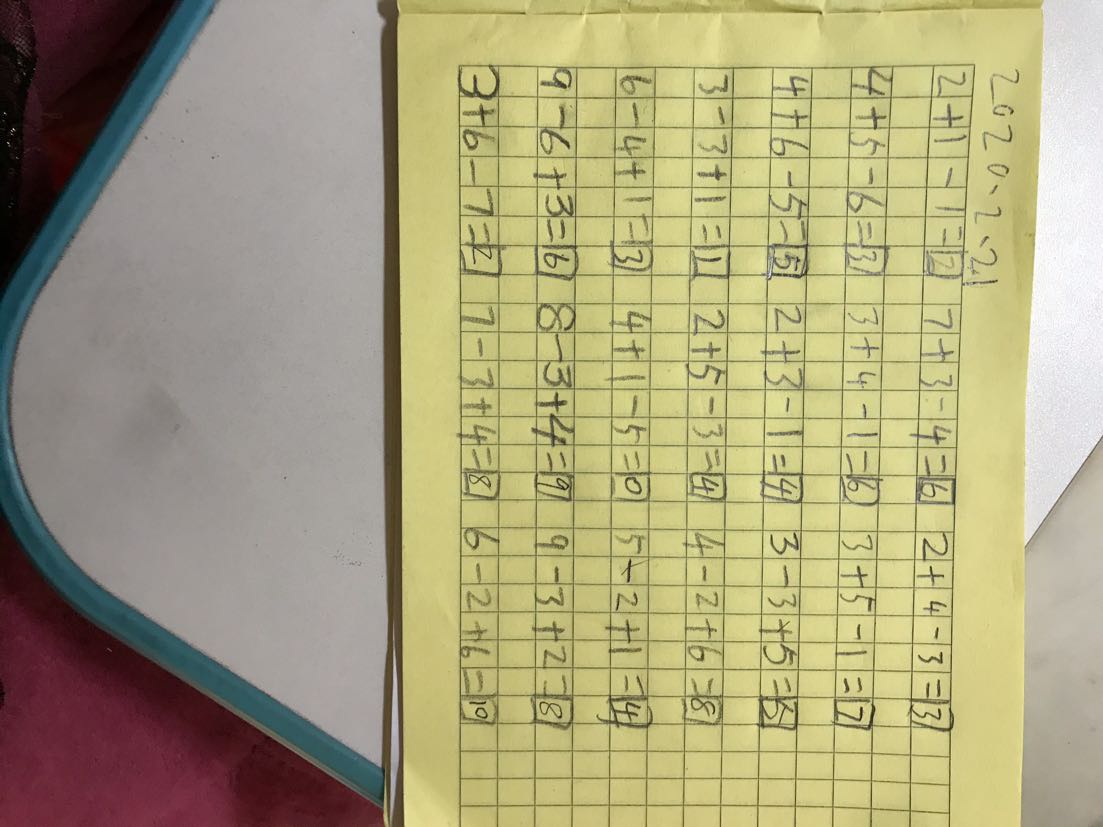 2020.2.21
2+1-1=2 7+3-4=6 2+4-3=3
4+5-6=3 3+4-1=6 3+5-1=7
4+6-5=5 2+3-1=4 3-3+5=5
3-3+1=1 2+5-3=4 4-2+6=8
6-4+1=3 4+1-5=0 5-2+1=4
9-6+3=6 8-3+4=9 9-3+2=8
3+6-7=2 7-3+4=8 6-2+6=10